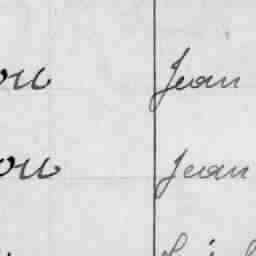 ou Jean
ou Jean